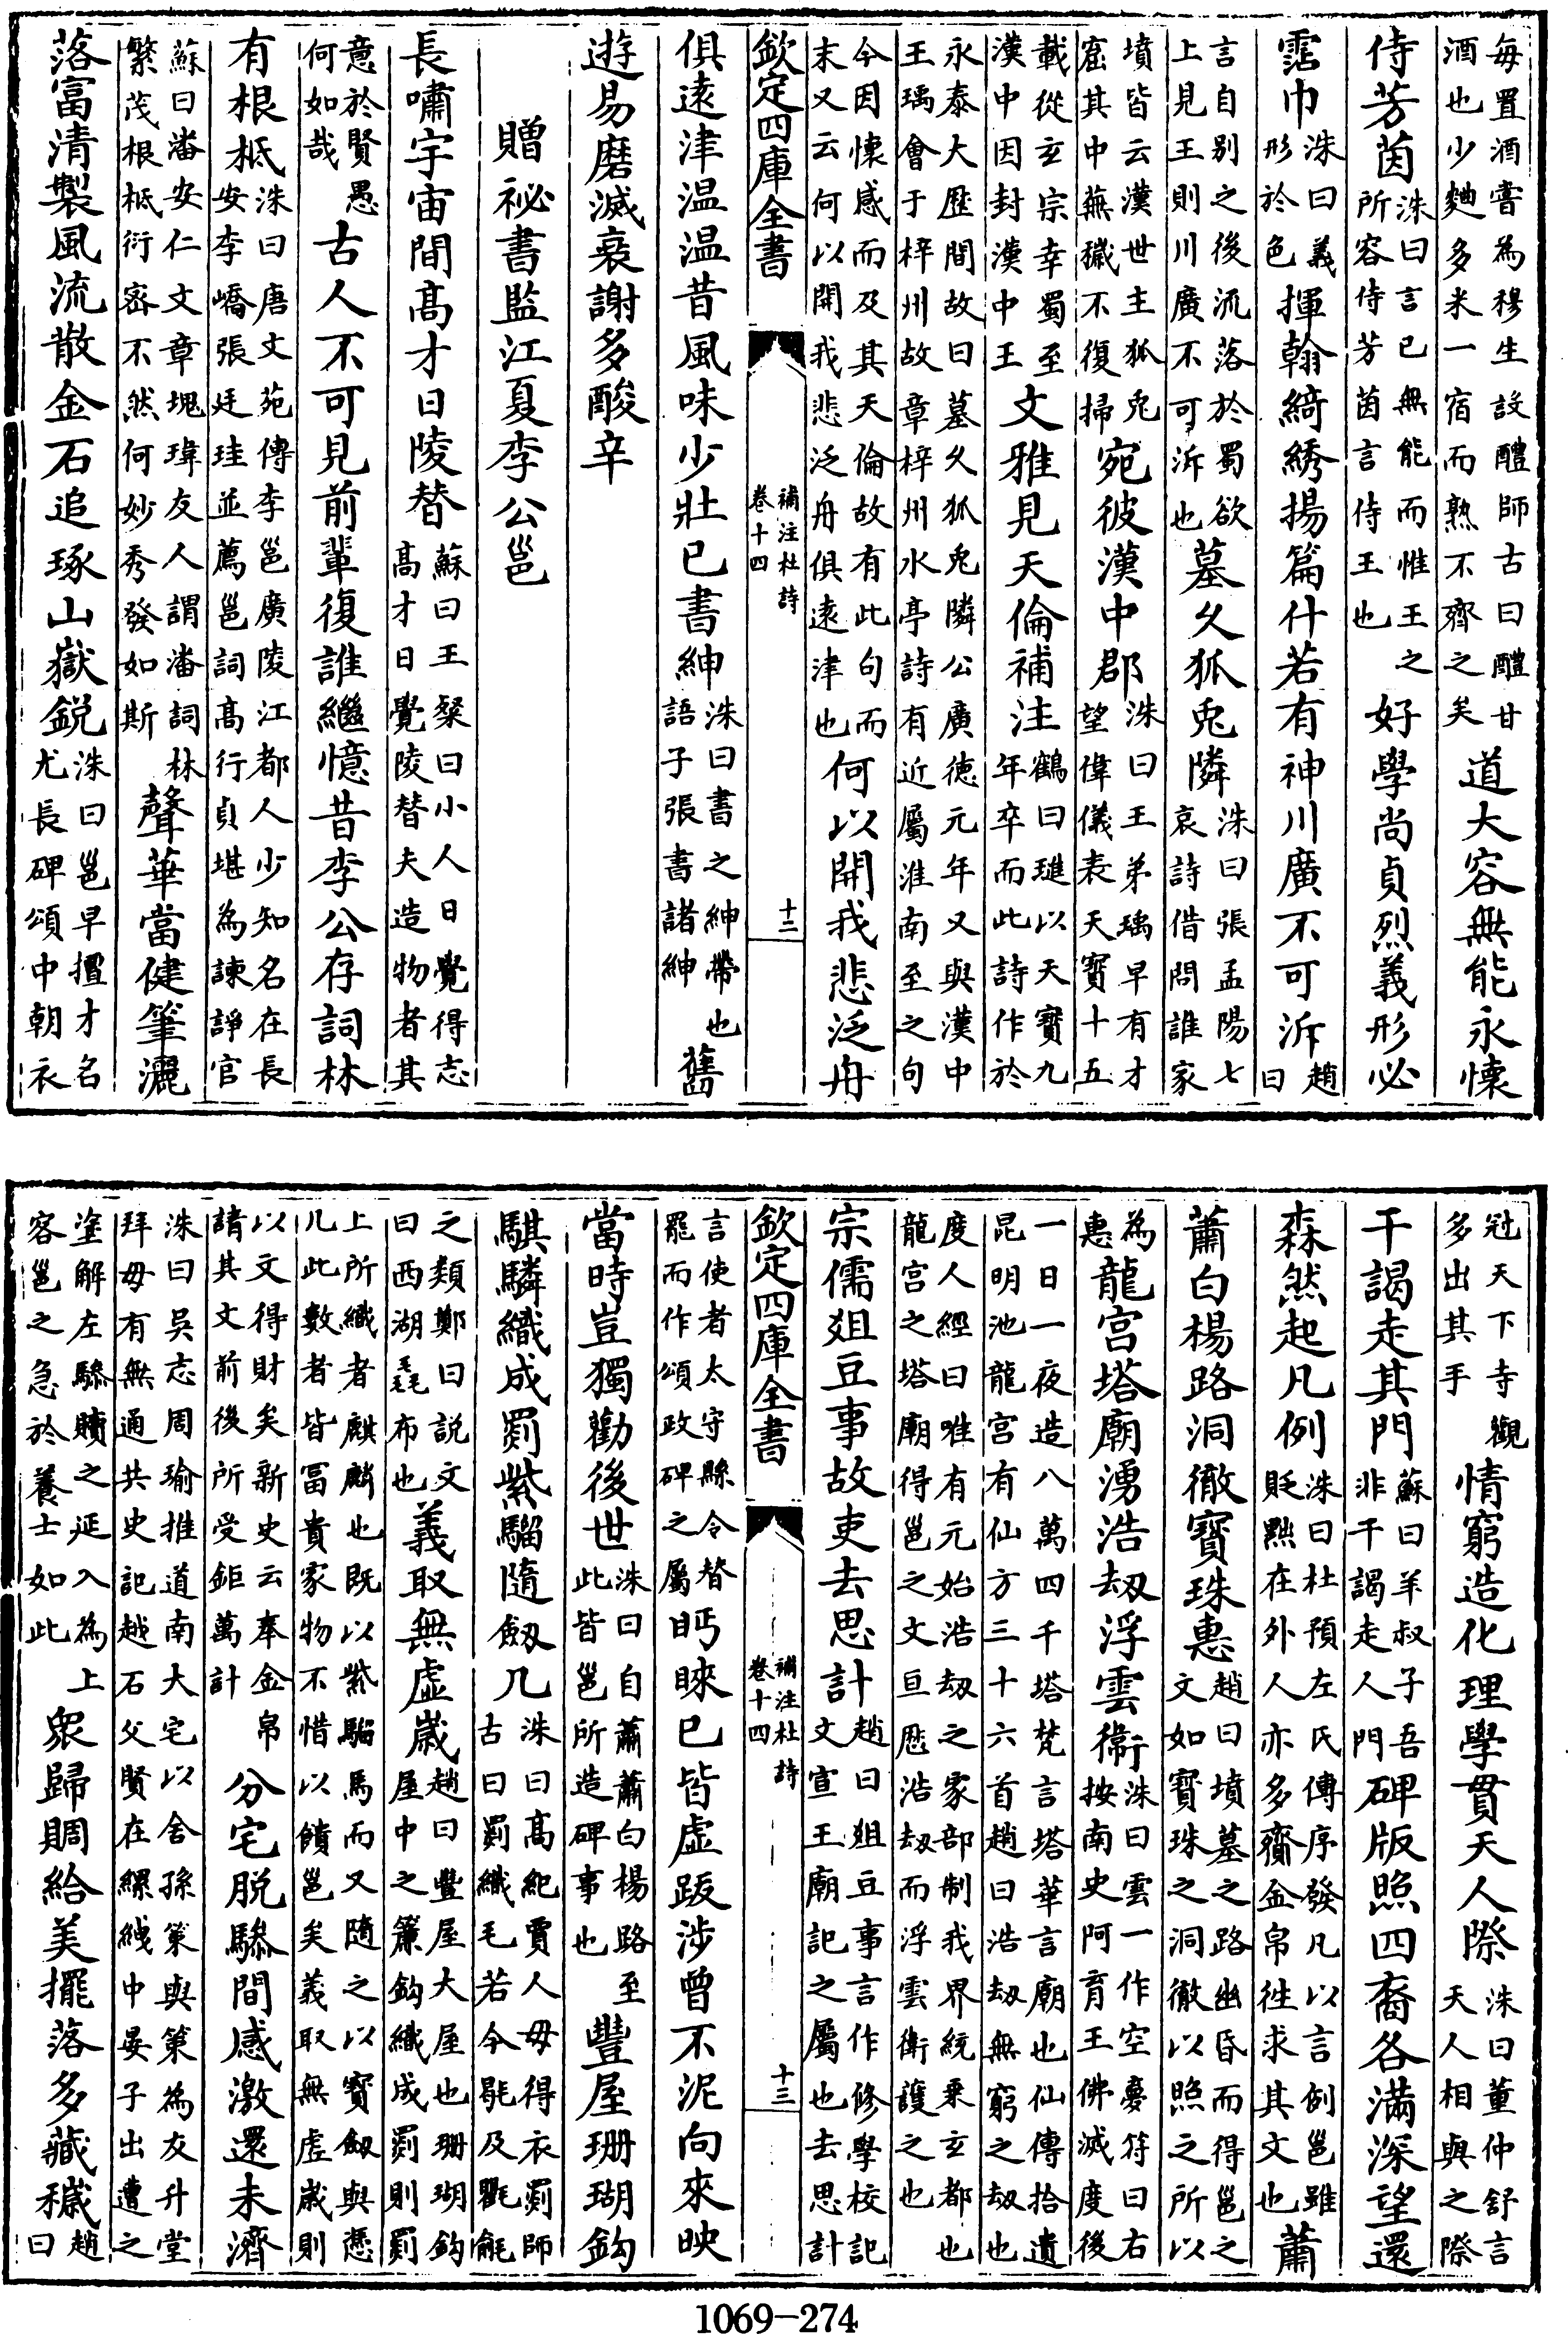 每置酒嘗為穆生設醴師古曰醴甘酒也少麯多米一宿而熟不齊之矣道大容無能永懷
侍芳茵洙曰言已無能而惟王之所容侍芳茵言侍王也好學尚貞烈義形必
霑巾洙曰義形於色揮翰綺綉揚篇什若有神川廣不可泝趙曰
言自别之後流落於蜀欲上見王則川廣不可泝也墓久狐兎隣洙曰張孟陽七哀詩借問誰家
墳皆云漢世主狐兎窟其中蕪穢不復掃宛彼漢中郡洙曰王弟瑀早有才望偉儀表天寳十五
載從玄宗幸蜀至漢中因封漢中王文雅見天倫補注鶴曰璡以天寳九年卒而此詩作於
永泰大歴間故曰墓久狐兎隣公廣徳元年又與漢中王瑀會于梓州故章梓州水亭詩有近屬淮南至之句
今因懷感而及其天倫故有此句而末又云何以開我悲泛舟俱遠津也何以開我悲泛舟
欽定四庫全書 補注杜詩 卷十四 十二
俱遠津温温昔風味少壯已書紳洙曰書之紳帶也語子張書諸紳舊
遊易磨滅衰謝多酸辛
贈祕書監江夏李公邕
長嘯宇宙間髙才日陵替蘇曰王粲曰小人日覺得志髙才日覺陵替夫造物者其
意於賢愚何如哉古人不可見前輩復誰繼憶昔李公存詞林
有根柢洙曰唐文苑傳李邕廣陵江都人少知名在長安李嶠張廷珪並薦邕詞髙行貞堪為諫諍官
蘇曰潘安仁文章瑰瑋友人謂潘詞林繁茂根柢衍宻不然何妙秀發如斯聲華當健筆灑
落富清製風流散金石追琢山嶽鋭洙曰邕早擅才名尤長碑頌中朝衣
冠天下寺觀多出其手情窮造化理學貫天人際洙曰董仲舒言天人相與之際
干謁走其門蘇曰羊叔子吾非干謁走人門碑版照四裔各滿深望還
森然起凡例洙曰杜預左氏傳序發凡以言例邕雖貶黜在外人亦多齎金帛徃求其文也蕭
蕭白楊路洞徹寳珠惠趙曰墳墓之路幽昏而得邕之文如寳珠之洞徹以照之所以
為惠龍宫塔廟湧浩刼浮雲衞洙曰雲一作空夢符曰右按南史阿育王佛滅度後
一日一夜造八萬四千塔梵言塔華言廟也仙傳拾遺昆明池龍宫有仙方三十六首趙曰浩刼無窮之刼也
度人經曰唯有元始浩刼之家部制我界統乘玄都也龍宫之塔廟得邕之文亘歴浩刼而浮雲衛護之也
宗儒俎豆事故吏去思計趙曰俎豆事言作修學校記文宣王廟記之屬也去思計
欽定四庫全書 補注杜詩 卷十四 十三
言使者太守縣令替罷而作頌政碑之屬眄睞已皆虚跋涉曾不泥向來映
當時豈獨勸後世洙曰自蕭蕭白楊路至此皆邕所造碑事也豐屋珊瑚鈎
騏驎織成罽紫騮隨劔几洙曰髙紀賈人毋得衣罽師古曰罽織毛若今毼及氍毹
之類鄭曰說文曰西湖毳布也義取無虚嵗趙曰豐屋大屋也珊瑚鈎屋中之簾鈎織成罽則罽
上所織者麒麟也既以紫騮馬而又隨之以寳劔與憑几此數者皆冨貴家物不惜以饋邕矣義取無虚嵗則
以文得財矣新史云奉金帛請其文前後所受鉅萬計分宅脱驂間感激還未濟
洙曰吳志周瑜推道南大宅以舍孫策與策為友升堂拜母有無通共史記越石父賢在縲絏中晏子出遭之
塗解左驂贖之延入為上客邕之急於養士如此衆歸賙給美擺落多藏穢趙曰
1069-274